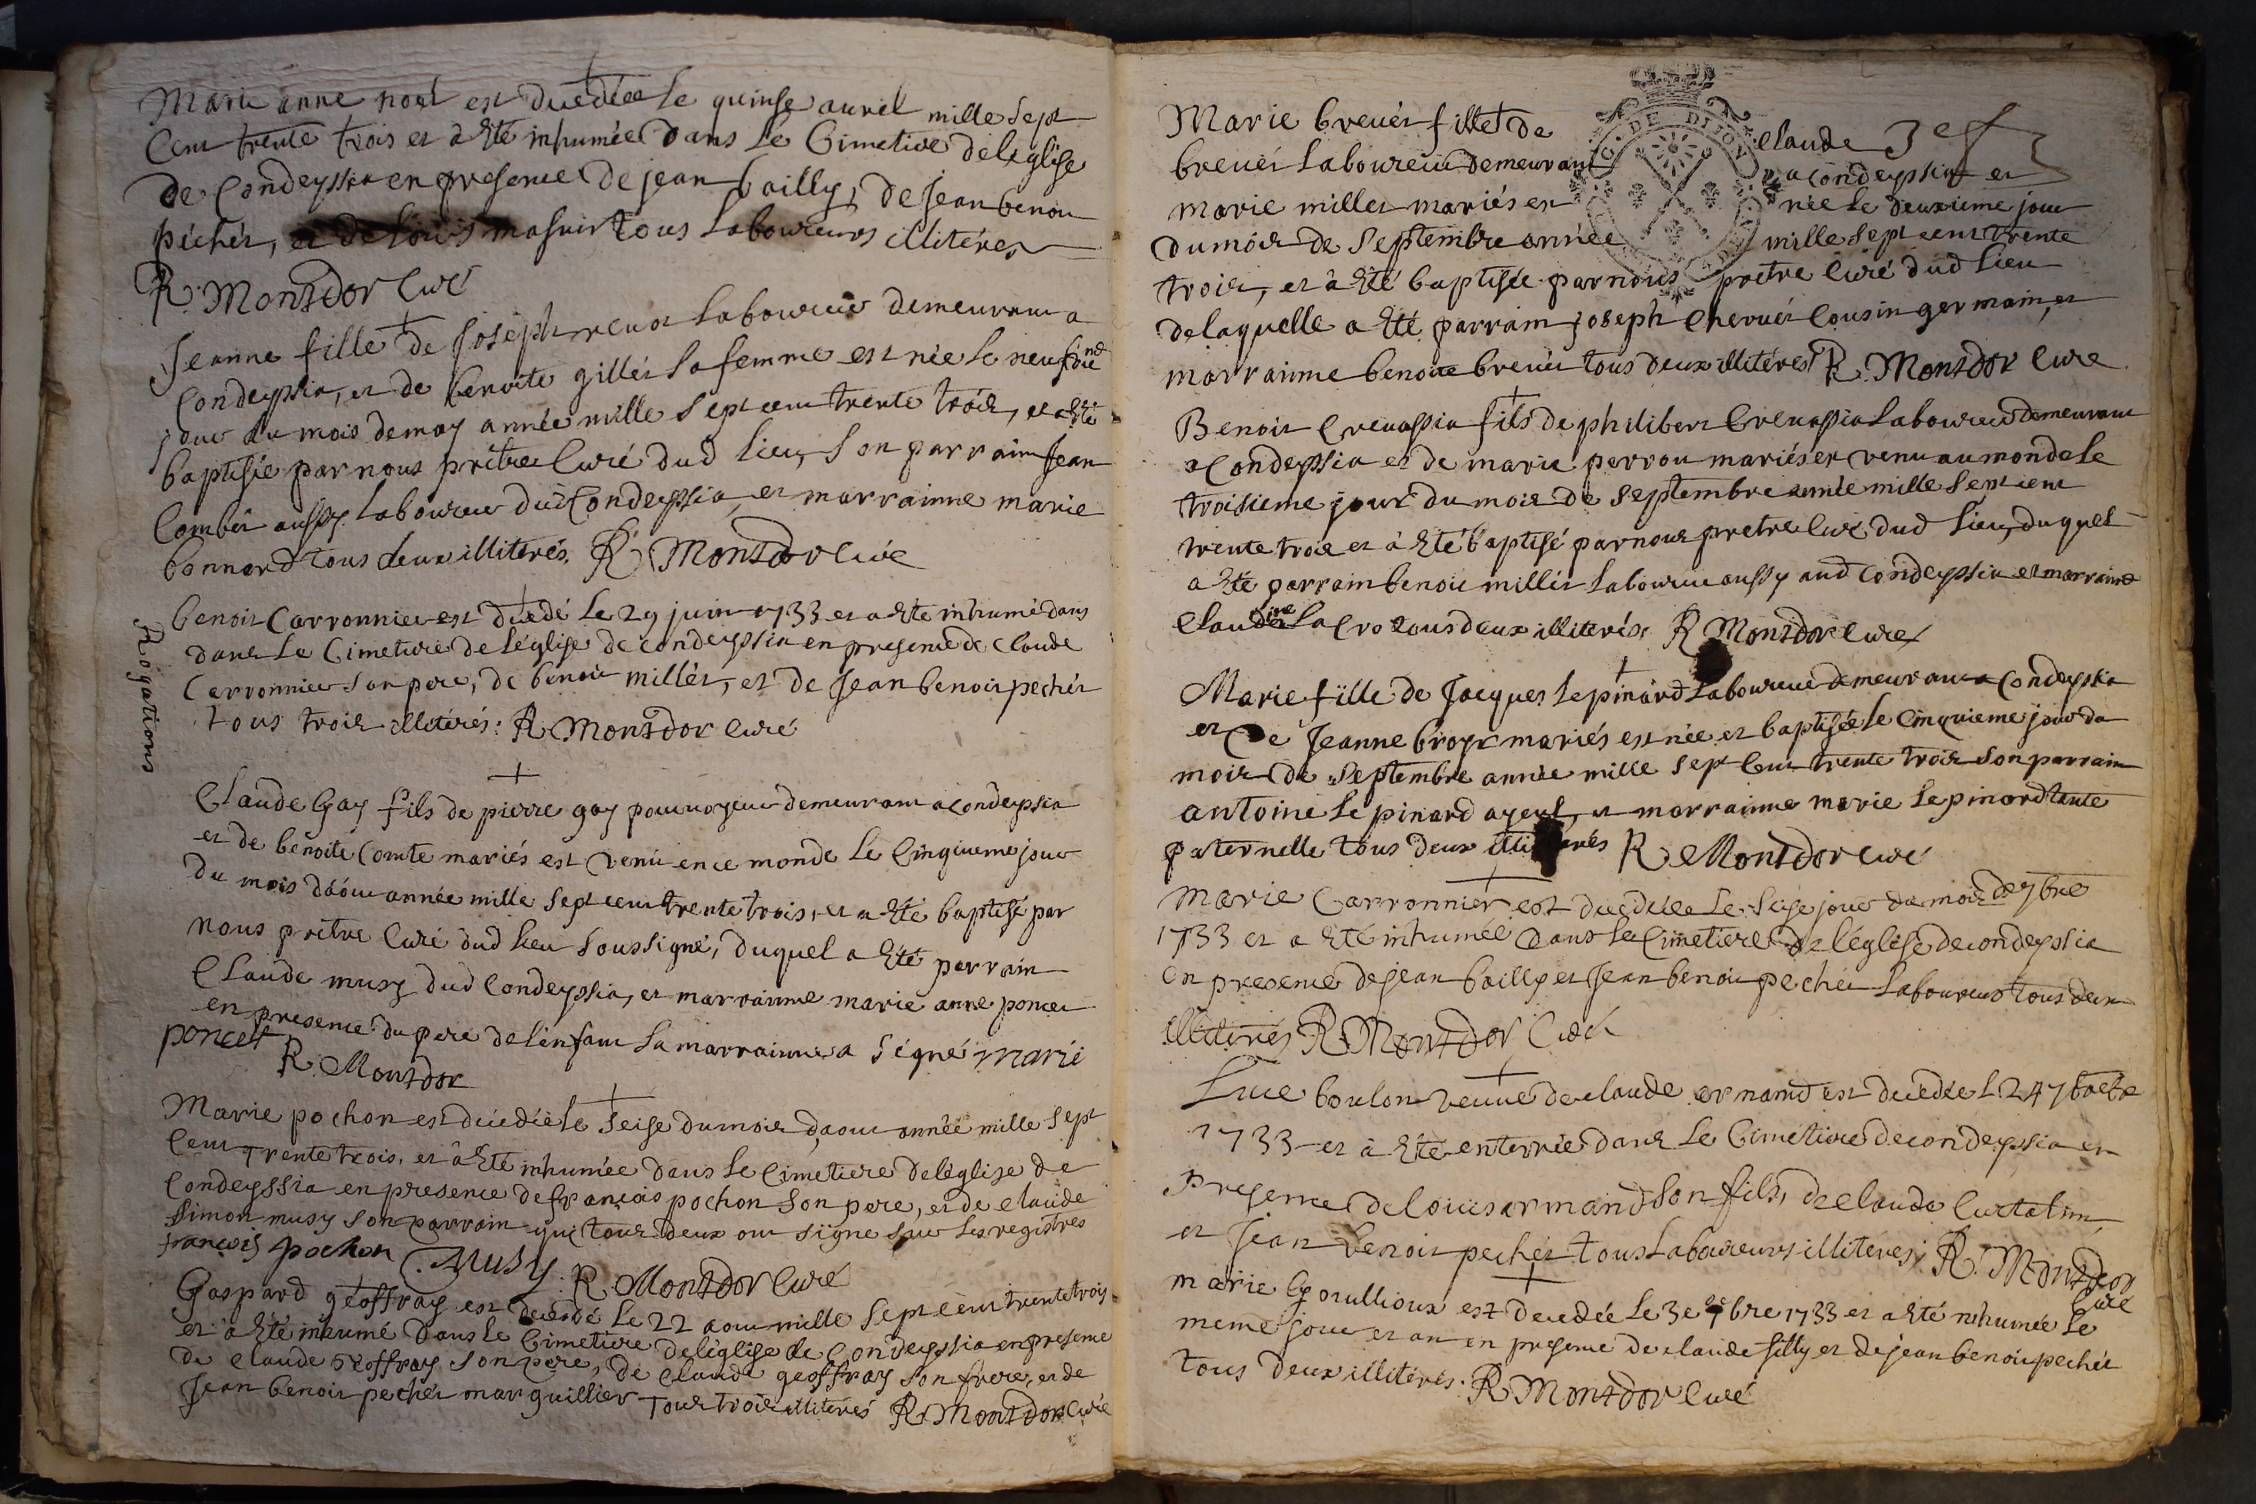 Marie anne noel est decedée le quinse auril mille sept
Cent trente trois et à Eté inhumée dans le Cimetiere de leglise
de Condeyssia en presence de jean bailly, de jean benoit
péchér, et de loüis masuir tous laboureurs illitéres
R. Montdor Curé
Jeanne fille de Joseph laboureur demeurant a
Condeyssia, et de benoite gillér sa femme est née le neufvie
jour du mois de may année mille sept cent trente trois, et a Eté
baptisée par nous prêtre Curé dud lieu, son parrain Jean
Combét aussy laboureur dud Condeyssia, et marrainne marie
bonnard tous deux illiterés. R. Montdor Curé
benoit Carronnier est decedé le 29 juin 1733 et a Eté inhumé dans
dans le Cimetiere de léglise de condeyssia en presence de Claude
Carronnier son pere, de benoit millér, et de Jean benoit pechér
tous trois illitérés: R. Montdor Curé
Rogations
Claude Gay fils de pierre gay pouruoyeur demeurant a condeyssia
et de benoite Comte mariés est venu en ce monde le Cinquieme jour
du mois d'août année mille sept cent trente trois, et a Eté baptisé par
nous prêtre Curé dud lieu soussigné, duquel a Eté parrain
Claude musy dud Condeyssia, et marrainne marie anne poncet
en presence du pere de lenfant la marrainne a signé marie
poncet
R. Montdor
Marie pochon est decedée le seise du mois daout année mille sept
Cent trente trois, et à Eté inhumée dans le Cimetiere de léglise de
Condeyssia en presence de françois pochon son pere, et de claude
simon musy son parrain qui tous deux ont signe sur les registres
françois pochon C. Musy. R. Montdor Curé
Gaspard géoffray est decedé le 22 aout mille sept cent trente trois
et a Eté inhumé dans le Cimetiere de léglise de Condeyssia en presence
de claude géoffray son pere, de claude geoffray son frere, et de
Jean benoit pechér marguillier tous trois illitérés R. Montdor Curé
Marie breuér fille de claude 3e
breuér laboureur demeurant a condeyssia et
marie millér mariés est née le deuxieme jour
du mois de septembre année mille sept cent trente
trois, et à Eté baptisée par nous pretre Curé dud lieu
de laquelle a Eté parrain joseph cheruér Cousin germain, et
marrainne benoite breuér tous deux illitérés R. Montdor Cure
G. DE DIJON
Benoit Creuassia fils de philibert Creuassia laboureur demeurant
a Condeyssia et de marie perrou mariés est venu au monde le
troisieme jour du mois de septembre année mille sept cent
trente trois et à Eté baptisé par nous pretre Curé dud lieu, duquel
a Eté parrain benoit millér laboureur aussy aud condeyssia et marraine
Claudine la Cro tous deux illitérés. R Montdor Curé
Marie fille de Jacques lepinard laboureur demeurant a Condeyssia
et de Jeanne broye mariés est née et baptisée le Cinquieme jour du
mois de septembre année mille sept Cent trente trois son parrain
antoine lepinard ayeul, et marrainne marie lepinard tante
paternelle tous deux illiterés R. Montdor Curé
Marie Carronnier est decedée le seise jour du mois de 7bre
1733 et a Eté inhumée dans le Cimetiere de léglise de condeyssia
en presence de jean bailly et Jean benoit pechér laboureurs tous deux
illitérés R. Montdor Curé
Luce boulon veuve de claude armand est decedée l 24
1733 et à Eté enterrée dans le Cimetiere de condeyssia en
presence de loüis armand son fils, de claude Curtalin,
et Jean benoit pechér tous laboureurs illitérés; R. Montdor
Curé
marie Gorullioux est decedée le 3e 1733 et a Eté inhumée le
meme jour et an en presence de claude filly et de jean benoit pechér
tous deux illitérés. R. Montdor Curé